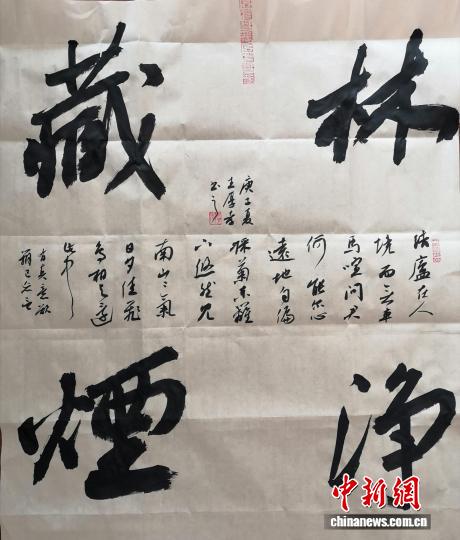 林
净
藏
煙
庚子夏
結廬在人
境而无車
馬喧問君
何能尔心
遠地自偏
採菊东籬
下悠然見
南山〻氣
日夕佳飛
鳥相与還
此中
有真意欲
辨已忘言
中新網
www.chinanews.com.cn